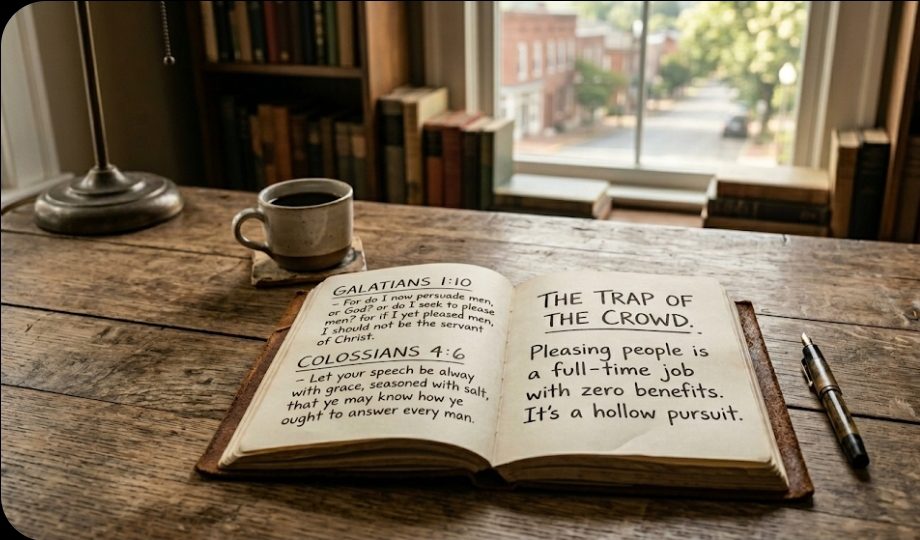 GALATIANS 1:10
– For do I now persuade men,
or God? or do I seek to please
men? for if I yet pleased men,
I should not be the servant
of Christ.
COLOSSIANS 4:6
– Let your speech be alway
with grace, seasoned with salt,
that ye may know how ye
ought to answer every man.
THE TRAP OF
THE CROWD.
Pleasing people is
a full-time job
with zero benefits.
It's a hollow pursuit.